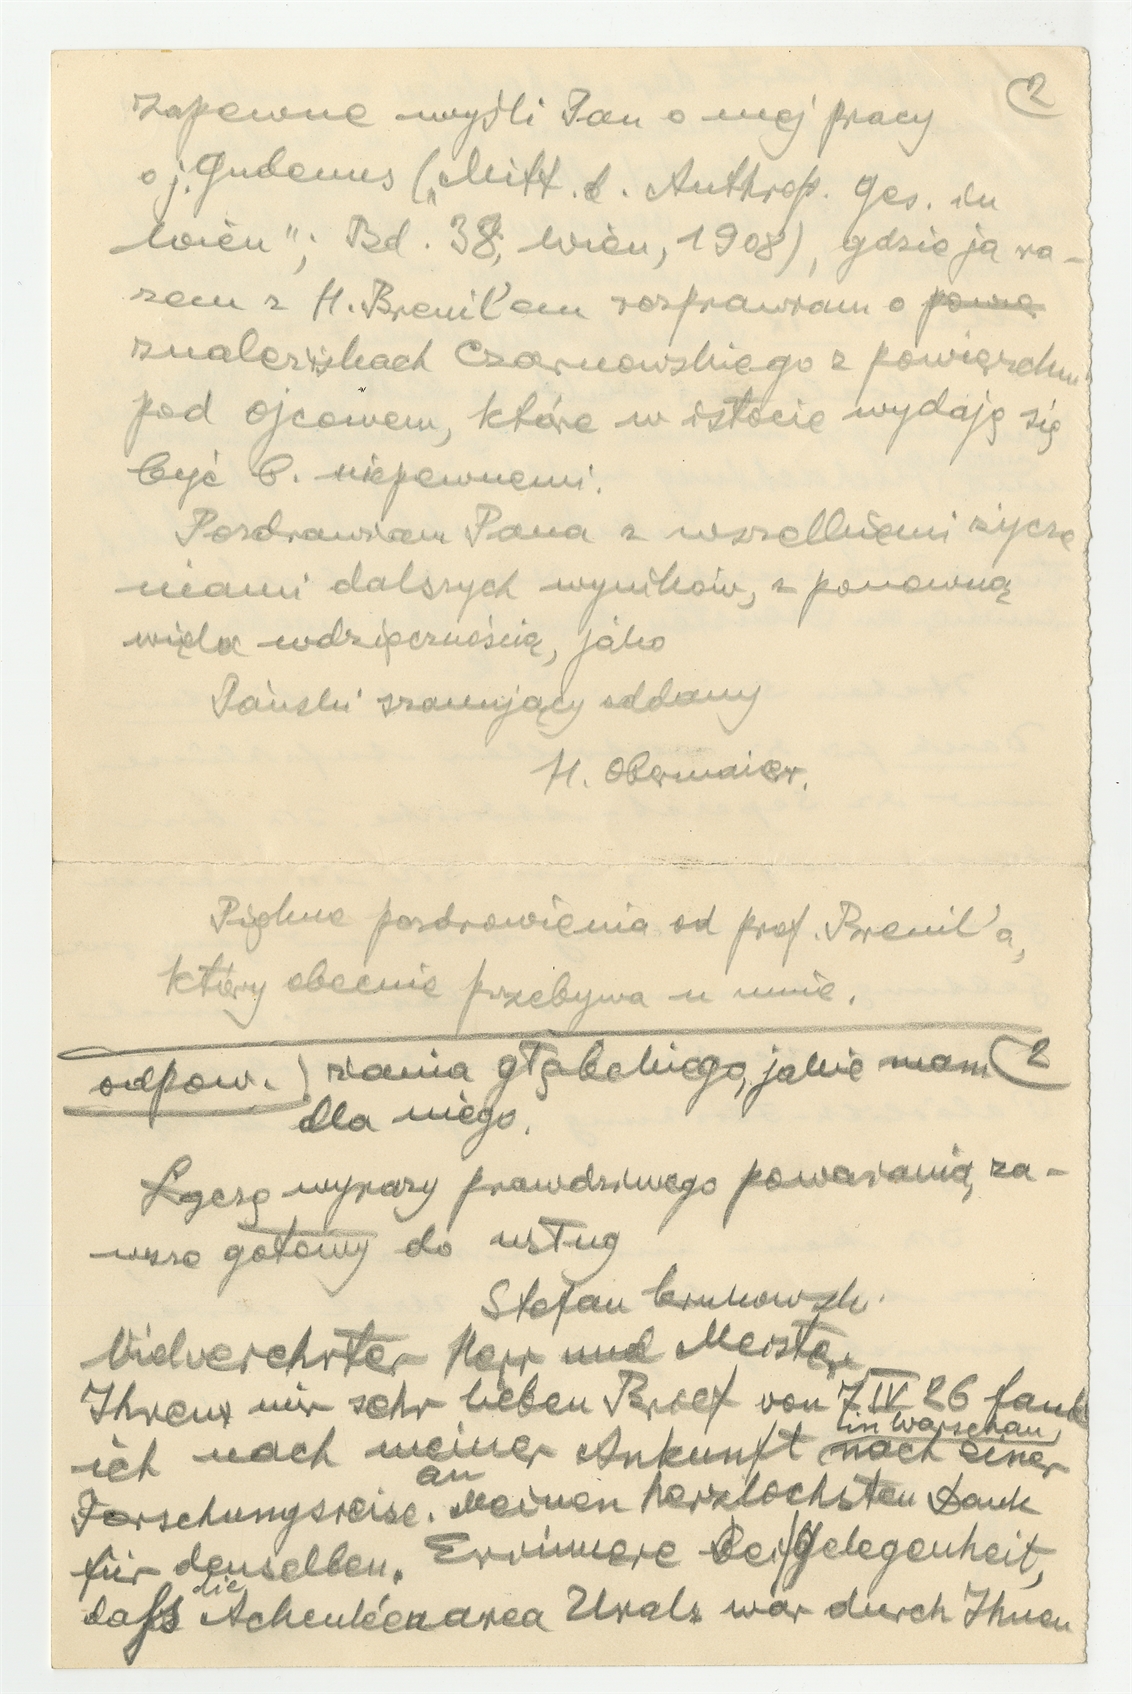 2
zapewne myśli Pan o mej pracy
o j. Gudenus („Mitt. d. Anthrop. Ges. in
Wien"; Bd. 38, Wien, 1908), gdzie ja ra-
zem z H. Breuil'em rozprawiam o powie
znaleziskach Czarnowskiego z powierzchni
pod Ojcowem, które w istocie wydają się
być b. niepewnemi.
Pozdrawiam Pana z wszelkiemi życze
niami dalszych wyników, z ponowną
wdzięcznością, jako
Pański szanujący oddany
H. Obermaier.
Piękne pozdrowienia od prof. Breuil'a,
który obecnie przebywa u mnie.
odpow.) żania głębokiego, jakie mam 2
dla niego.
Łączę wyrazy prawdziwego poważania, za-
wsze gotowy do usług
Stefan Krukowski.
Vielverehrter Herr und Meister
Ihren mir sehr lieben Brief von 7 IV 26 fand
ich nach meiner Ankunft (in Warschau) nach einer
Forschungsreise an. Meinen herzlochsten Dank
für denselben. Errinnere bei Gelegenheit,
daß die Acheuléenarea Urals war durch Ihnen